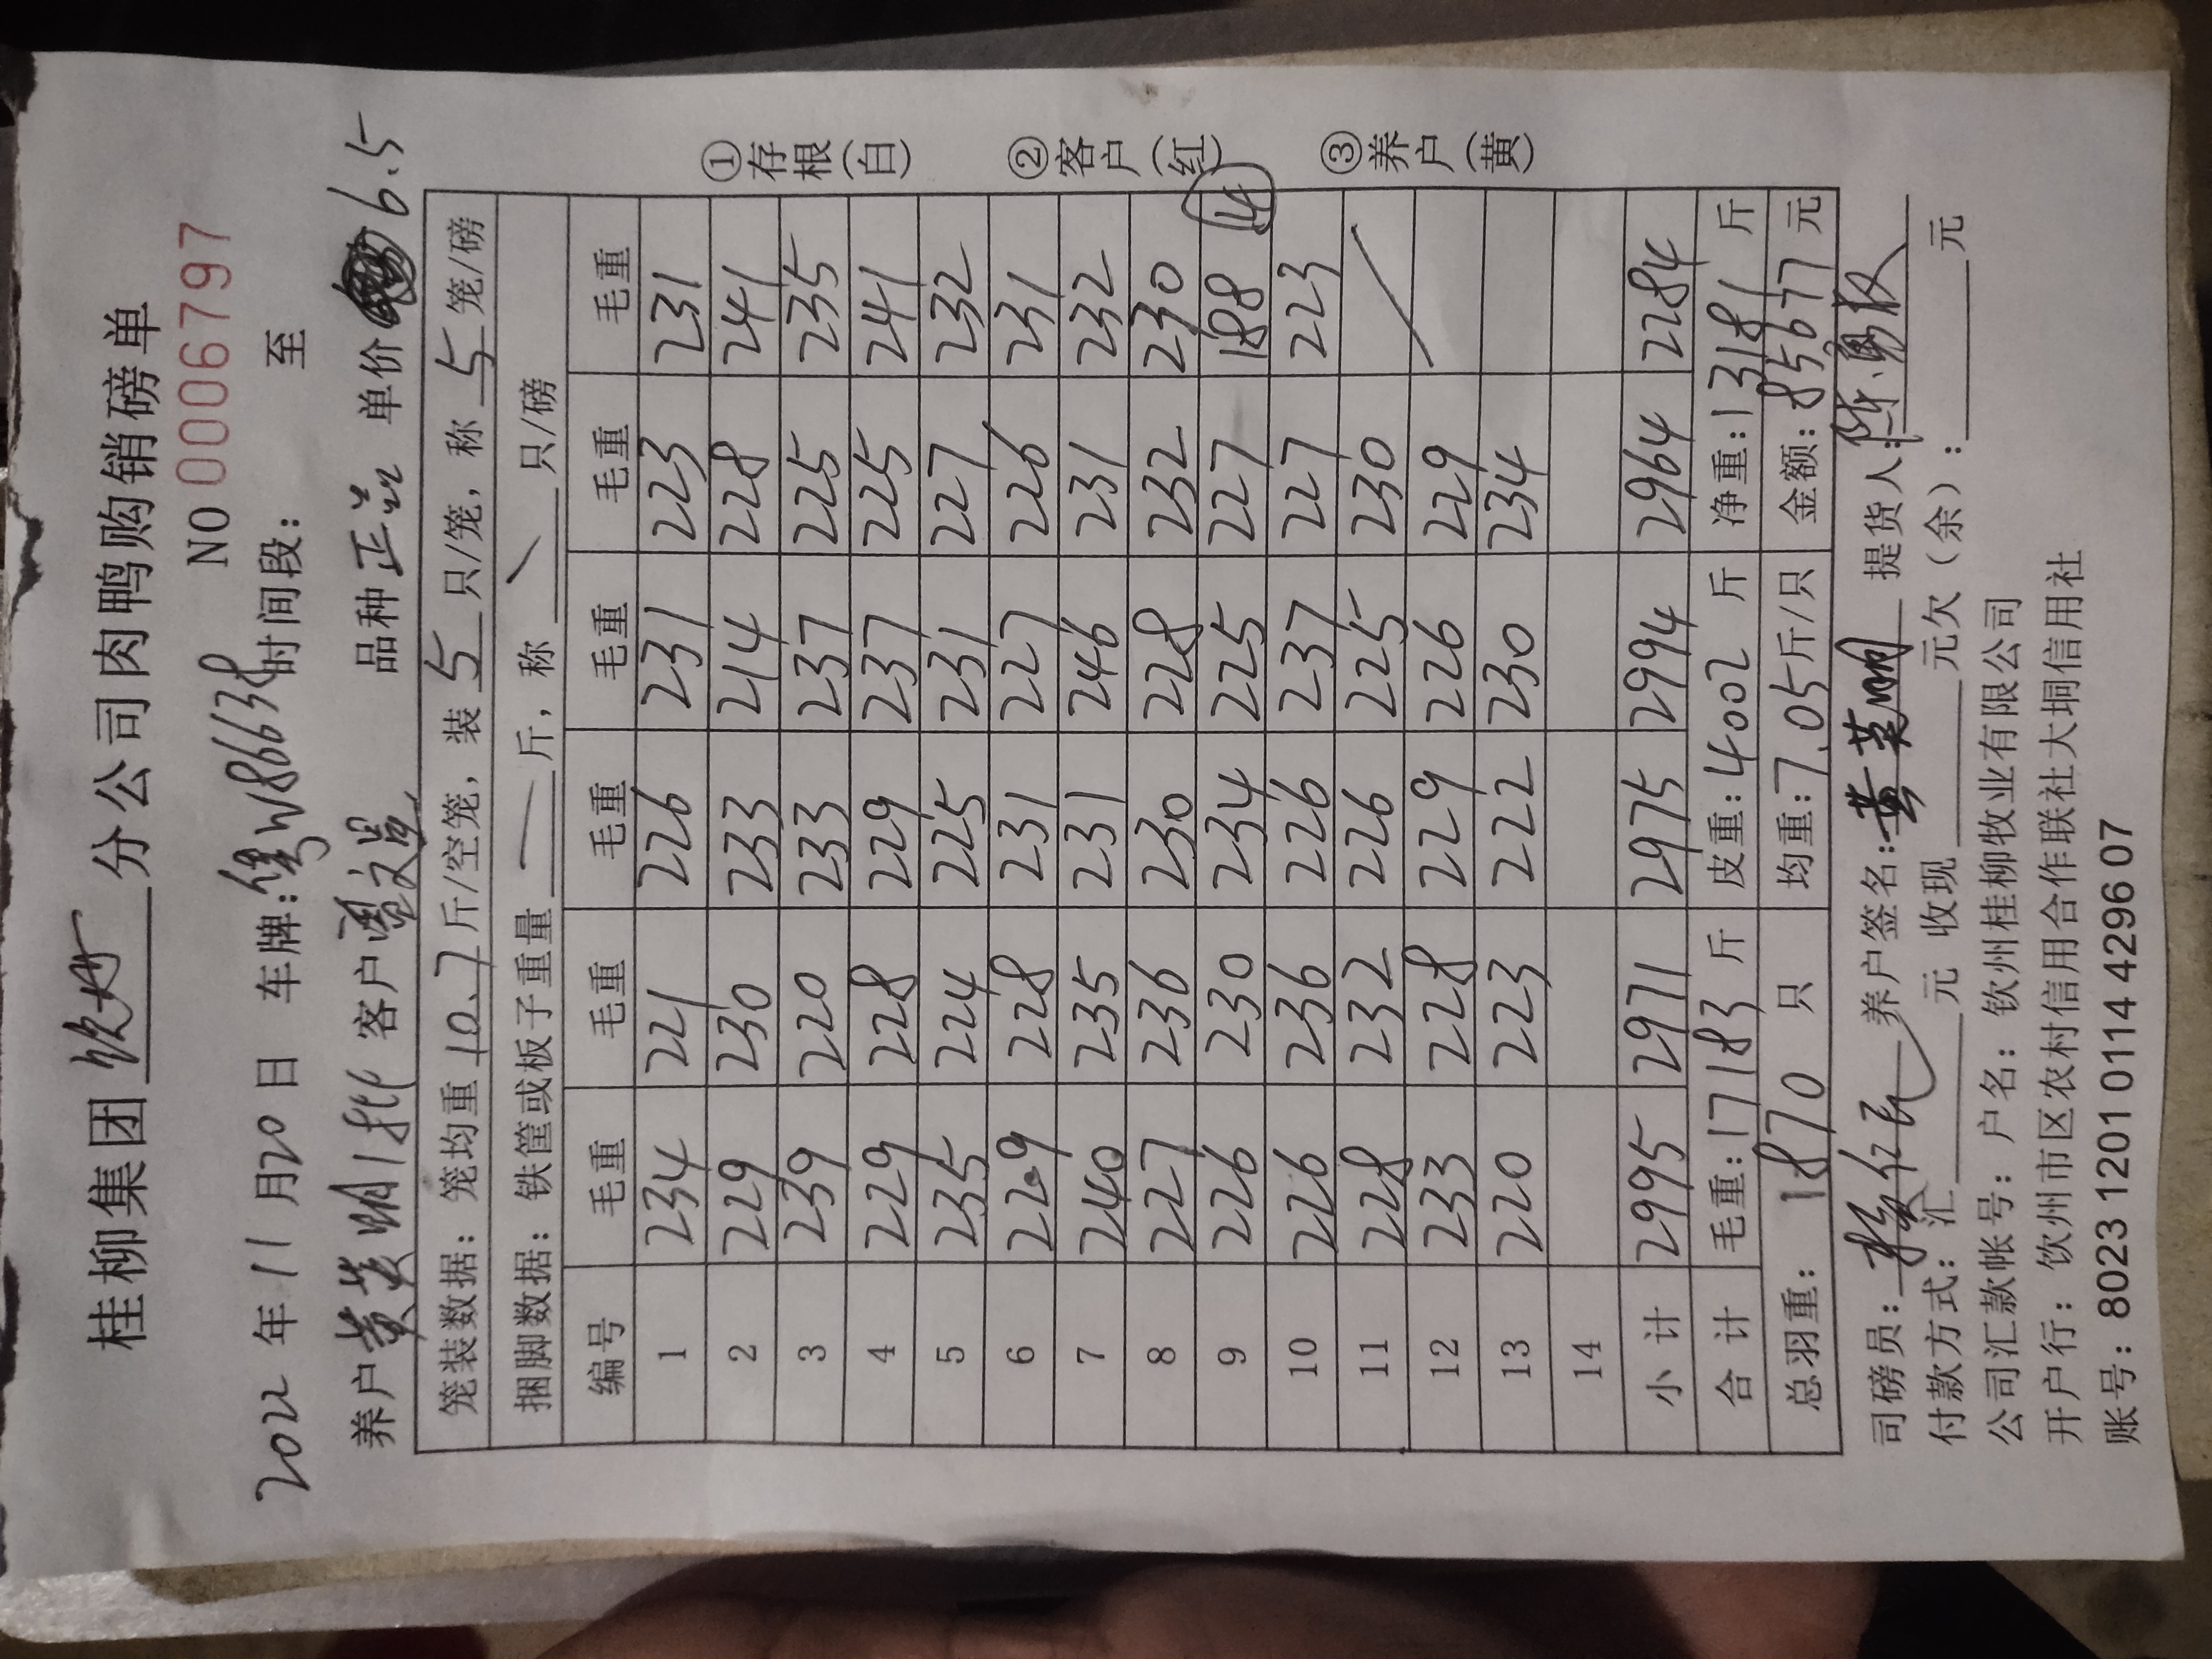 桂柳集团钦州分公司肉鸭购销磅单
NO 0006797
2022年11月20日 车牌: W86638 时间段: 至
养户 黄 批 客户 文 品种 正品 单价 6.5
笼装数据: 笼均重 10.7 斤/空笼, 装 5 只/笼, 称 5 笼/磅
捆脚数据: 铁筐或板子重量 — 斤, 称 \ 只/磅
编号 毛重 毛重 毛重 毛重 毛重 毛重
1 234 221 226 231 223 231
2 229 230 233 214 228 241
3 239 220 233 237 225 235
4 229 228 229 237 225 241
5 235 224 225 231 227 232
6 229 228 231 227 226 231
7 240 235 231 246 231 232
8 227 236 230 228 232 230
9 226 230 234 225 227 188
10 226 236 226 237 227 223
11 228 232 226 225 230 /
12 233 228 229 226 229
13 220 223 222 230 234
14
小计 2995 2971 2975 2994 2964 2284
合计 毛重: 17183 斤 皮重: 4002 斤 净重: 13181 斤
总羽重: 1870 只 均重: 7.05 斤/只 金额: 85677 元
①存根(白)
②客户(红)
③养户(黄)
司磅员: 养户签名: 黄 提货人: 陈
付款方式: 汇 元 收现 元欠(余): 元
公司汇款帐号: 户名: 钦州桂柳牧业有限公司
开户行: 钦州市区农村信用合作联社大垌信用社
账号: 8023 1201 0114 4296 07